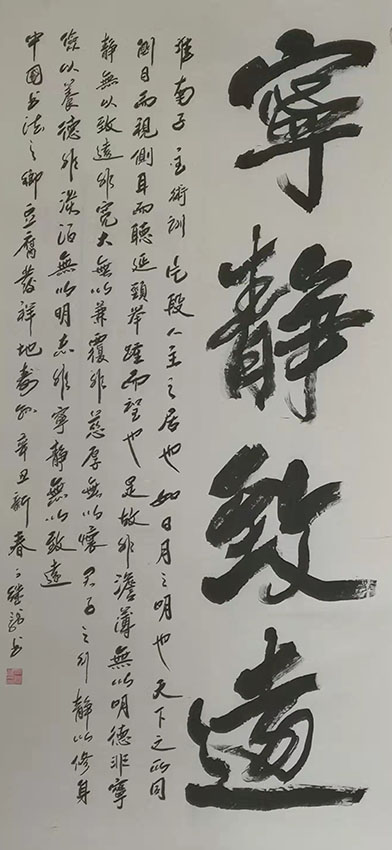 寧靜致遠
淮南子主術訓片段人主之居也如日月之明也天下之所同
側目而視側耳而聽延頸舉踵而望也是故非澹薄無以明德非寧
靜無以致遠非寬大無以兼覆非慈厚無以懷君子之行靜以修身
儉以養德非淡泊無以明志非寧靜無以致遠
中國书法之鄉豆腐發祥地壽州辛丑新春书